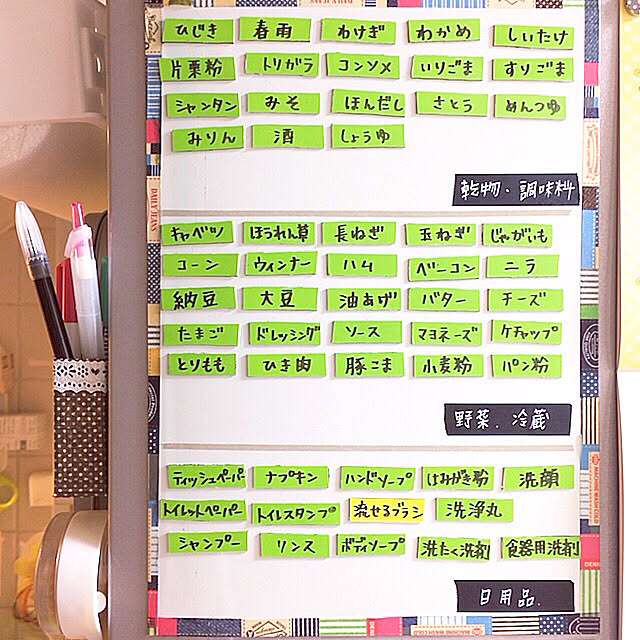 ひじき 春雨 わけぎ わかめ しいたけ
片栗粉 トリガラ コンソメ いりごま すりごま
シャンタン みそ ほんだし さとう めんつゆ
みりん 酒 しょうゆ
乾物・調味料
キャベツ ほうれん草 長ねぎ 玉ねぎ じゃがいも
コーン ウィンナー ハム ベーコン ニラ
納豆 大豆 油あげ バター チーズ
たまご ドレッシング ソース マヨネーズ ケチャップ
とりもも ひき肉 豚こま 小麦粉 パン粉
野菜、冷蔵
ティッシュペーパー ナプキン ハンドソープ はみがき粉 洗顔
トイレットペーパー トイレスタンプ 流せるブラシ 洗浄丸
シャンプー リンス ボディソープ 洗たく洗剤 食器用洗剤
日用品.